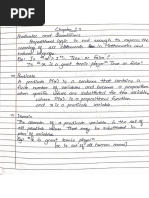 Chapter 1.3
Predicates and Quantifiers
Propositional logic is not enough to express the
meaning of all statements in Mathematics and
natural language.
Is "x > 1" True or False?
Is "x is a great tennis player" True or False?
Predicate
A predicate P(x) is a sentence that contains a
finite number of variables and becomes a proposition
when specific values are substituted for the variables,
where P(x) is a propositional function
and x is a predicate variable.
Domain
The domain of a predicate variable is the set of
all possible values that may be substituted in
place of variables.
"x is a great tennis player"
(x is set of all human names)